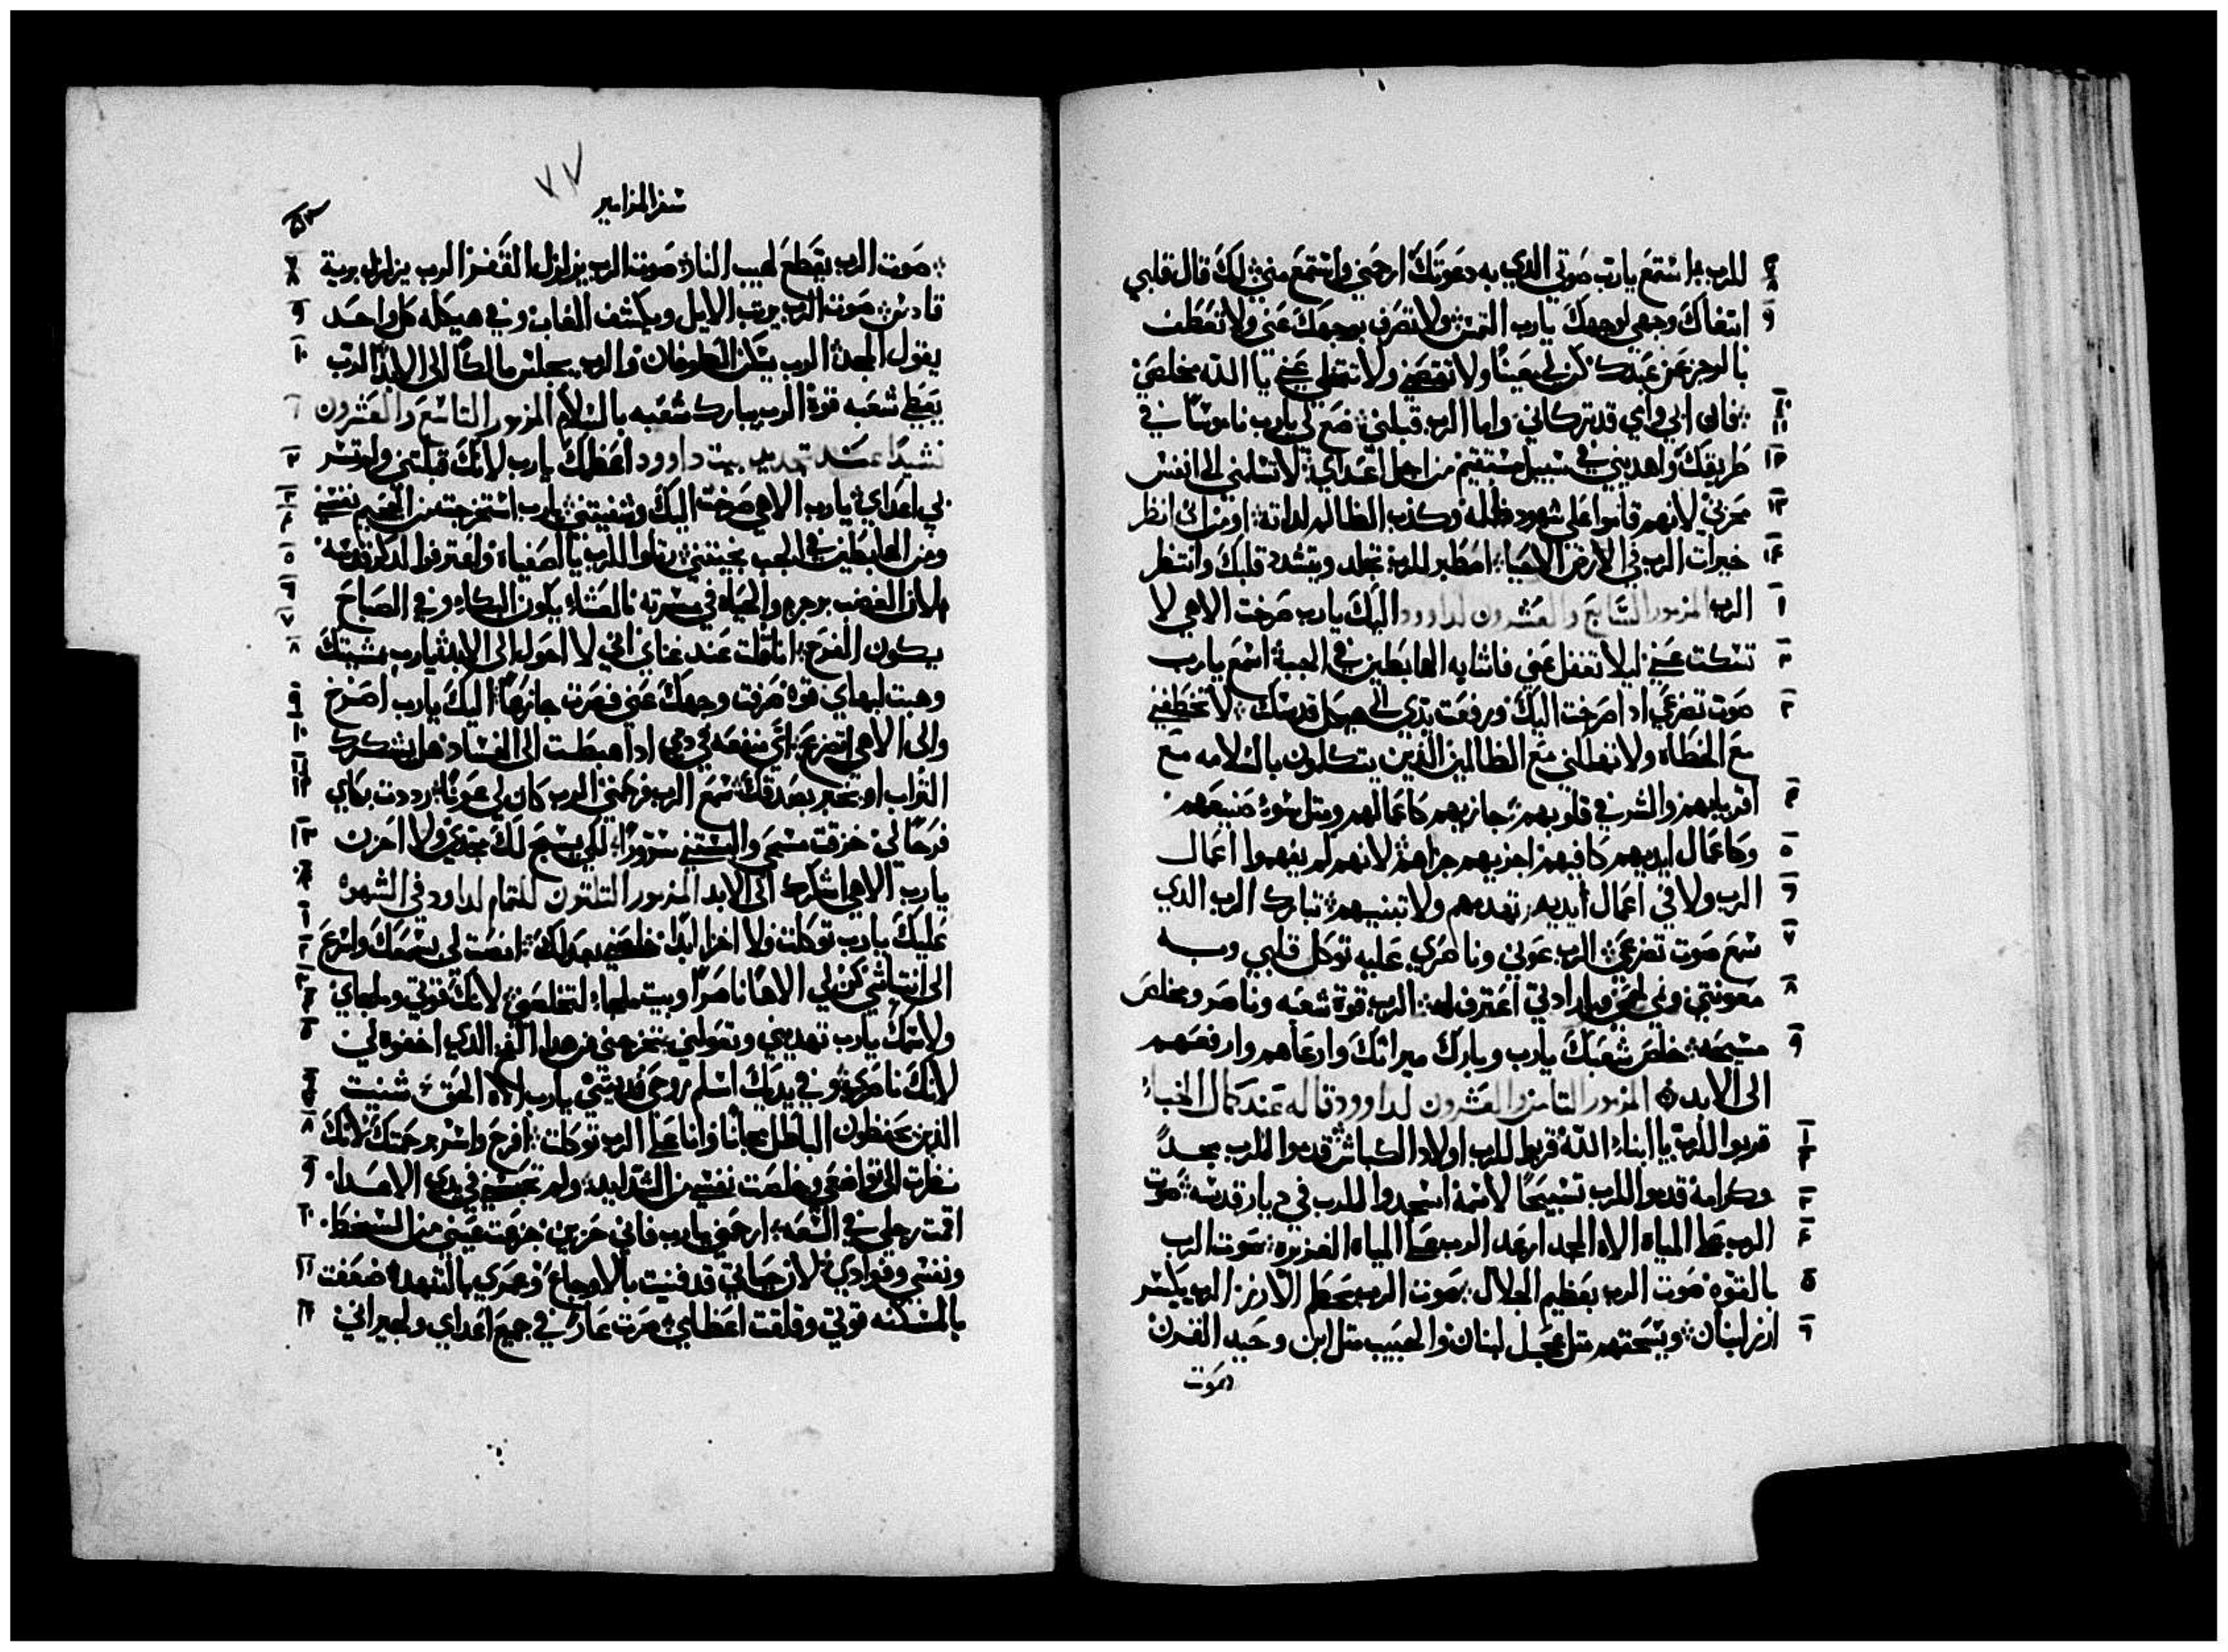 للرب استمع يارب صوتي الدي به دعوتك ارحمني واستمع مني لك قال قلبي
ابتغاك وجهي لوجهك يارب التمس ولا تصرف بوجهك عني ولا تعطف
بالرجز عن عبدك كن لي معينا ولا تقصني ولا تتخلي عني يا الله مخلصي
فان ابي وامي قد تركاني واما الرب قبلني ضع لي يارب ناموسا في
طريقك واهديني في سبيل مستقيم من اجل اعداي لا تسلمني الى انفس
محزني لانهم قاموا علي شهود ظلمه وكذب الظالم لذاته اومن اني انظر
خيرات الرب في الارض الاحيا اصطبر للرب تجلد ويتشدد قلبك وانتظر
الرب المزمور السابع والعشرون لداوود اليك يارب صرخت الاهي لا
تسكت عني ليلا تغفل عني فاشابه الهابطين في الجب اسمع يارب
صوت تضرعي ادا صرخت اليك ورفعت يدي الى هيكل قدسك لا تخطفني
مع الخطاه ولا تهلكني مع الظالمين الذين يتكلمون بالسلامه مع
اقربايهم والشر في قلوبهم جازيهم كاعمالهم ومتل سوء صنيعهم
وكاعمال ايديهم كافيهم اجزيهم جزاهم لانهم لم يفهموا اعمال
الرب ولا في اعمال ايديه تهدمهم ولا تبنيهم تبارك الرب الدي
سمع صوت تضرعي الرب عوني وناصري عليه توكل قلبي وبه
معونتي ونمي لحمي وبارادتي اعترف له الرب قوة شعبه وناصر ومخلص
مسيحه خلص شعبك يارب وبارك ميراتك وارعاهم وارفعهم
الى الابد المزمور التامن والعشرون لداوود قاله عند كمال الخباء
قربوا للرب يا ابناء الله قربوا للرب اولاد الكباش قدموا للرب مجدا
وكرامة قدموا للرب تسبيحا لاسمة اسجدوا للرب في ديار قدسه صوت
الرب على المياه الاه المجد ارعد الرب على المياه الغزيره صوت الرب
بالقوه صوت الرب بعظيم الجلال صوت الرب يحطم الارز الرب يكسر
ارز لبنان ويسحقهم متل عجل لبنان والحبيب متل ابن وحيد القرن
صوت
٧٧
سفر المزامير
صوت الرب يقطع لهيب النار صوت الرب يزلزل القفر الرب يزلزل برية
قادش صوت الرب يرتب الايل ويكشف الغاب وفي هيكله كل واحد
يقول المجد الرب يسكن الطوفان والرب يجلس مالكا الى الابد الرب
يعطي شعبه قوة الرب يبارك شعبه بالسلام المزمور التاسع والعشرون
نشيدا عند تجديد بيت داوود اعظمك يارب لانك قبلتني ولم تسر
بي اعداي يارب الاهي صرخت اليك وشفيتني يارب استخرجت من الجحيم نفسي
ومن الهابطين في الجب نجيتني رتلوا للرب يا اصفياه واعترفوا لدكر قدسه
لان الغضب برجزه والحياه في مسرته بالعشاء يكون البكاء وفي الصباح
يكون الفرح انا قلت عند غناي اني لا احول الى الابد يارب بمشيتك
وهبت لبهاي قوه صرفت وجهك عني فصرت جازعا اليك يارب اصرخ
والى الاهي اتضرع اي منفعه في دمي ادا هبطت الى الفساد هل يشكرك
التراب او يخبر بصدقك سمع الرب فرحمني الرب كان لي عونا رددت بكاي
فرحا لي خزقت مسحي والبستني سرورا لكي يسبح لك مجدي ولا احزن
يارب الاهي اشكرك الى الابد المزمور التلتون للتمام لداود في الشهره
عليك يارب توكلت ولا اخزا ابدا خلصني بعدلك انصت لي بسمعك واسرع
الى انتياشي كن لي الاها ناصرا وبيت ملجاء لتخلصني لانك قوتي وملجاي
ولاسمك يارب تهديني وتعولني تخرجني من هدا الفخ الدي اخفوه لي
لانك ناصري وفي يديك اسلم روحي فديتني يارب الاه الحق شنيت
الذين يحفظون الباطل مجانا وانا على الرب توكلت افرح واسر برحمتك لانك
نظرت الى تواضعي وخلصت نفسي من الشدايد ولم تحبسني في يدي الاعدا
اقمت رجلي في السعه ارحمني يارب فاني حزين جزعت عيني من السخط
ونفسي وفوادي لان حياتي قد فنيت بالاوجاع وعمري بالتنهد ضعفت
بالمسكنه قوتي وقلقت اعظامي صرت عارا في جميع اعداي ولجيراني